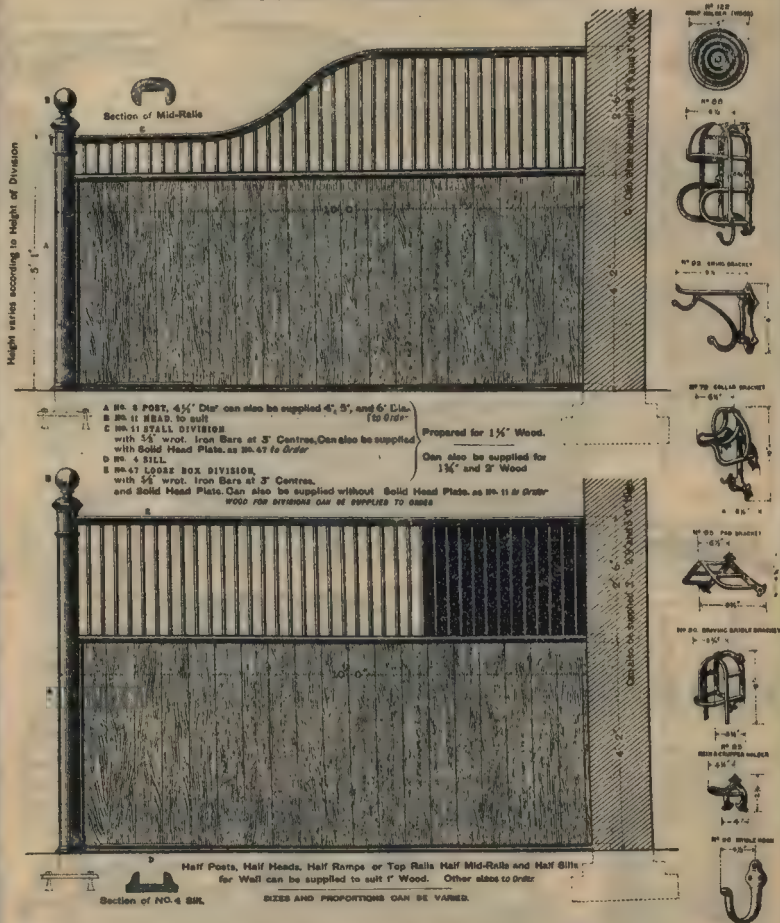 Section of Mid-Rails
Height varies according to Height of Division
5' 1"
10' 0"
4' 2"
2' 6"
A NO. 8 POST, 4½" Diar can also be supplied 4", 5", and 6" Dia.
B NO. 11 HEAD, to suit [to Order
C NO. 11 STALL DIVISION
with ⅝" wrot. Iron Bars at 3" Centres, Can also be supplied
with Solid Head Plate, as No. 47 to Order
D NO. 4 SILL
E NO. 47 LOOSE BOX DIVISION,
with ⅝" wrot. Iron Bars at 3" Centres.
and Solid Head Plate. Can also be supplied without Solid Head Plate, as No. 11 to Order
WOOD FOR DIVISIONS CAN BE SUPPLIED TO ORDER
Prepared for 1½" Wood.
Can also be supplied for
1¾" and 2" Wood
10' 0"
4' 2"
2' 6"
Can also be supplied
Half Posts, Half Heads, Half Ramps or Top Rails Half Mid-Rails and Half Sills
for Wall can be supplied to suit 1" Wood. Other sizes to Order
Section of NO. 4 Sill.
SIZES AND PROPORTIONS CAN BE VARIED.
Nº 122
(WOOD)
5"
COLLAR BRACKET
PAD BRACKET
DRIVING BRIDLE BRACKET
REIN & CRUPPER HOLDER
BRIDLE HOOK